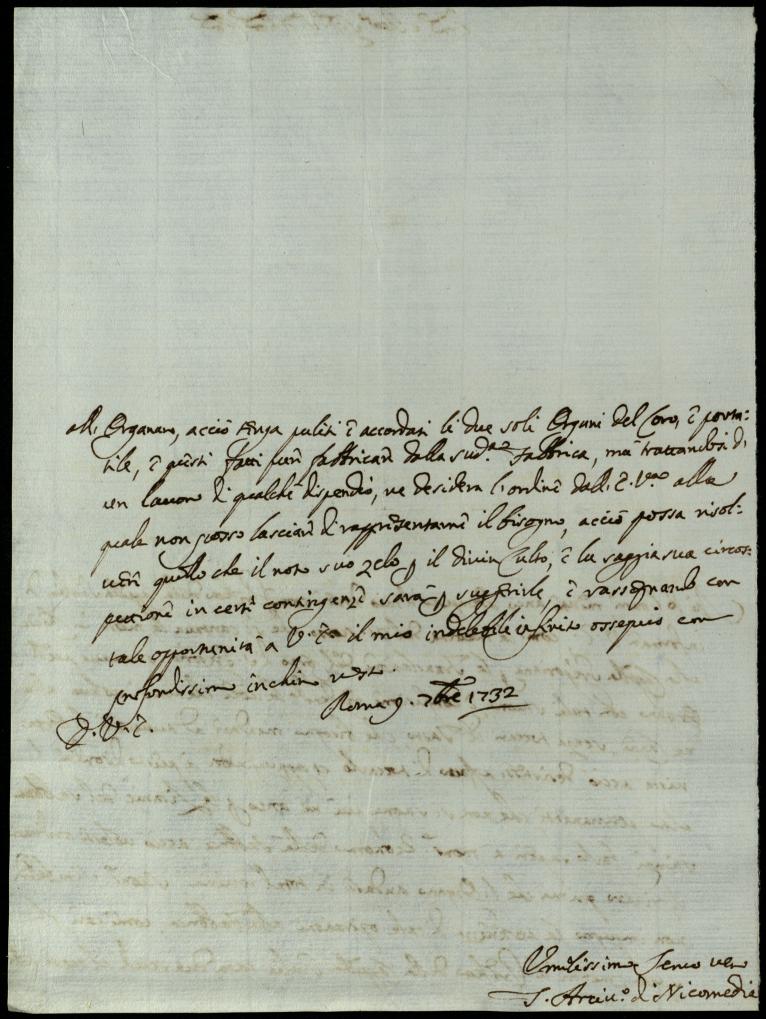 all'Organaro, acciò tenga puliti è accordati li due soli Organi del Coro, è porta=
tile, è questi fatti furì fabbricarì dalla sud.ª Fabbrica, mà trattandosi di
un lavoro di qualche dispendio, ne desidera l'ordine dall' E. V.ra alla
quale non posso lasciare di rappresentarne il bisogno, acciò possa risol=
vere quello che il noto suo zelo p il divin Culto, è la saggia sua circos=
pezione in certi contingenze sarà p suggerirle, è rassegnando con
tale opportunità a V. E. il mio indelebile infinito ossequio con
profondissimo inchino resto.
Roma 9. 7bre 1732
D. V. E.
Umilissimo Servo vero
Arciv.º di Nicomedia